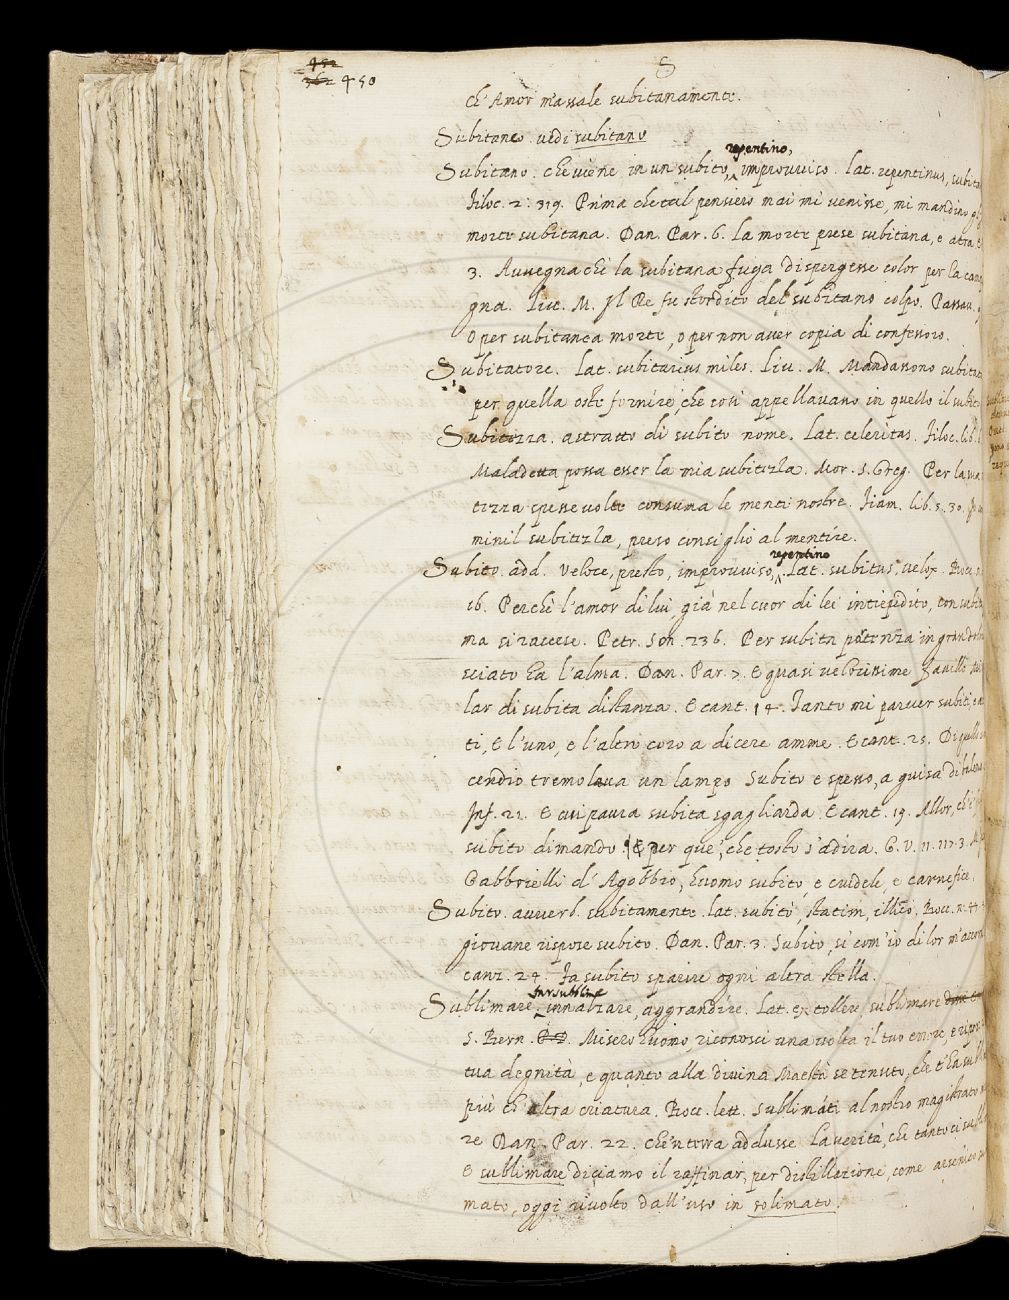 452
362 450
S
ch' Amor m'assale subitanamente.
Subitaneo. vedi subitano
repentino,
Subitano. che viene in un subito, improvviso. Lat. repentinus, subita
Filoc. 2. 319. Prima che tal pensiero mai mi venisse, mi mandino gl
morte subitana. Dan. Par. 6. La morte prese subitana, e atra. E
3. Avvegna chè la subitana fuga dispergesse color per la camp
gna. Liv. M. Il Re fu stordito del subitano colpo. Passav.
o per subitanea morte, o per non aver copia di confessoro.
Subitatore. Lat. subitarius miles. Liv. M. Mandassono subitat
per quella oste fornire, che così appellavano in quello il subito
Subitezza. astratto di subito nome. Lat. celeritas. Filoc. lib.
Maladetta possa esser la mia subitezza. Mor. S. Greg. Per la
tezza spesse volte consuma le menti nostre. Fiam. lib. 5. 30.
minil subitezza, preso consiglio al mentire.
repentino
Subito. add. veloce, presto, improvviso, Lat. subitus, velox. Bocc. n.
16. Perchè l'amor di lui, già nel cuor di lei intiepidito, con subita
ma si raccese. Petr. Son. 236. Per subita partenza in gran
sciato ha l'alma. Dan. Par. 7. E quasi velocissime faville
lar di subita distanza. E cant. 14. Tanto mi parver subiti, e
ti, E l'uno, e l'altro coro a dicere amme. E cant. 25. Di quello
cendio tremolava un lampo Subito e spesso, a guisa di baleno
Inf. 21. E cui paura subita sgagliarda. E cant. 19. Allor, ch'
subito dimando. E per que', che tosto s'adira. G. V. 11. 117. 3. M
Gabbrielli d' Agobbio, huomo subito, e crudele, e carnefice.
Subito. avverb. subitamente. Lat. subitò, statim, illico. Bocc. n. 44
giovane rispose subito. Dan. Par. 3. Subito, sì com'io di lor m'accor
cant. 24. Fa subito sparire ogni altra stella.
far sublime
Sublimare. innalzare, aggrandire. Lat. extollere sublimare
S. Bern. Misero huomo, riconosci una volta il tuo errore, e
tua degnità, e quanto alla divina Maestà se tenuto, che t'ha
più ch' altra criatura. Bocc. lett. Sublimati al nostro magistrato
re Dan. Par. 22. Che 'n terra addusse La verità, che tanto ci
E sublimare diciamo il raffinar, per distillazione, come arsenico
mato, oggi rivolto dall'uso in solimato.